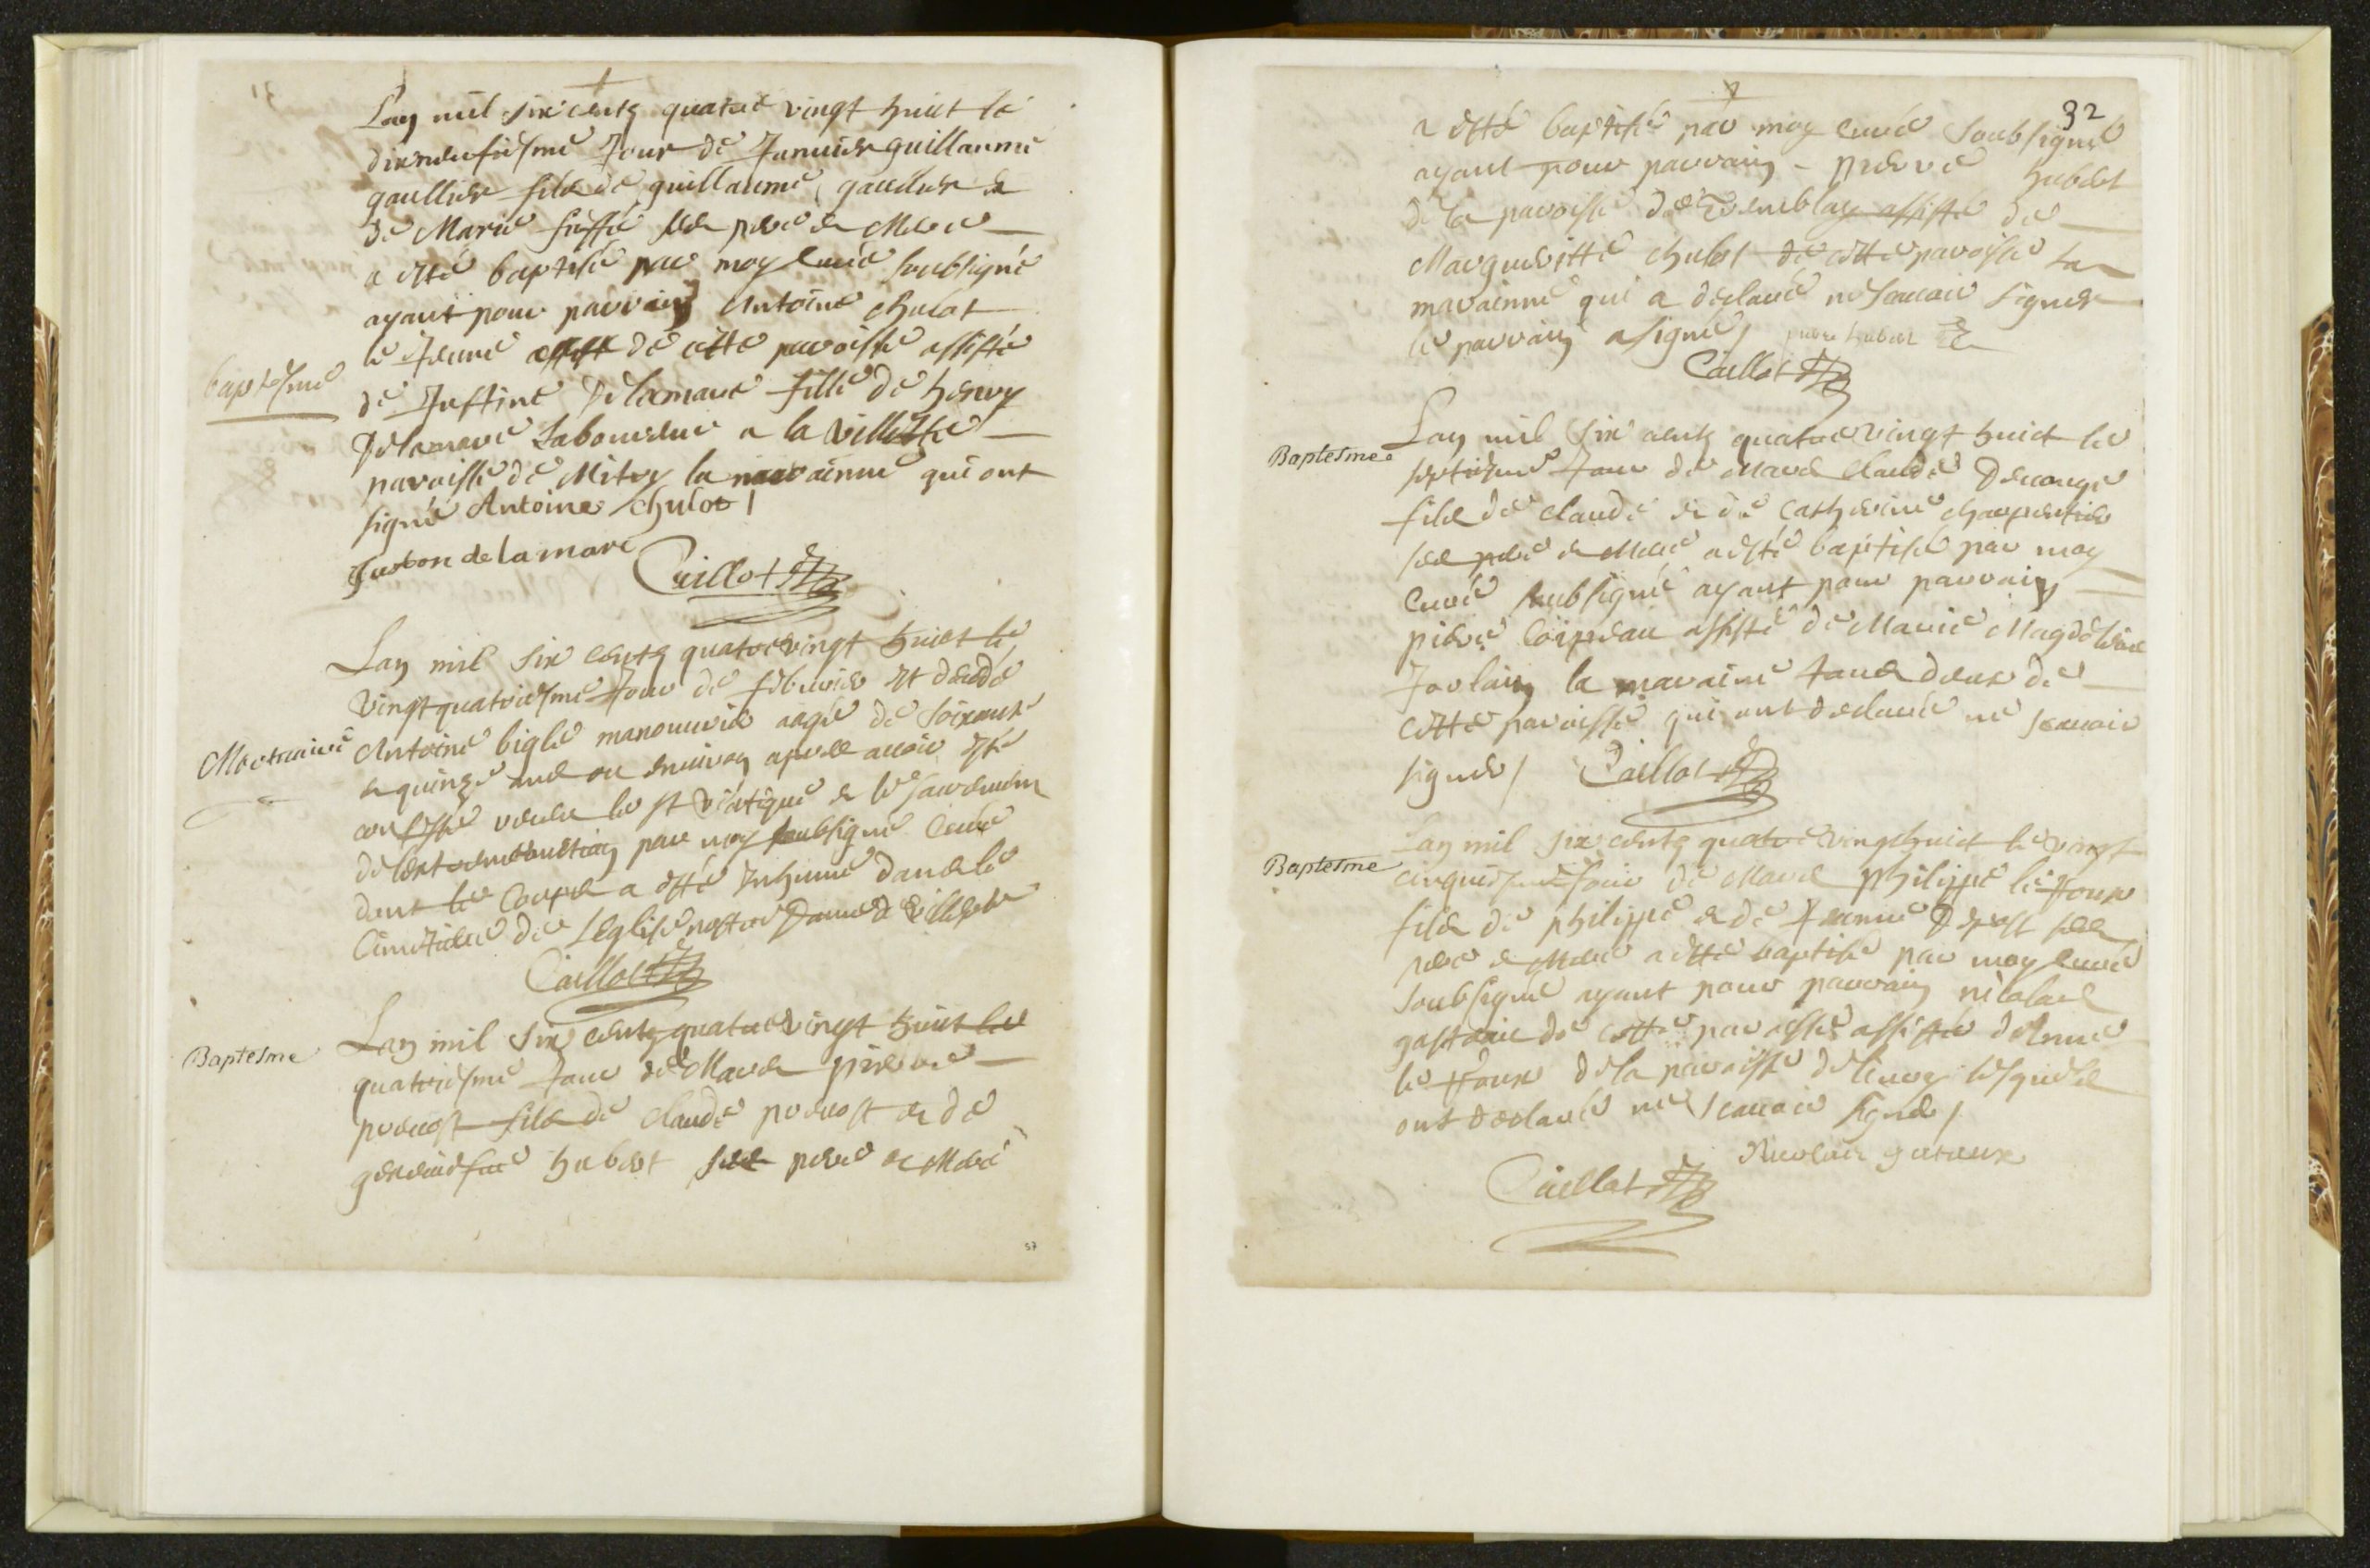 Lan mil six centz quatre vingt huict le
dixneufiesme Jour de Januier guillaume
gaullier filz de guillaume gaullier &
de Marie ses pere & Mere
a esté baptisé par moy Curé soubsigné
ayant pour parrain Antoine chulot
le Jeune de cette paroisse assisté
baptesme
de Justine Delamare fille de henry
Delamare Laboureur a la villette
paroisse de Mitry la marainne qui ont
signé Antoine chulot
de la mare
Caillot
Lan mil six centz quatre vingt huict le
vingtquatriesme Jour de febvrier est deddé
Mortuaire
Antoine bigle manouurier aagé de soixante
& quinze ans ou enuiron apres auoir esté
confessé receu le st viatique & le sacrement
de lextremonction par moy soubsigné Curé
dont le Corps a esté Inhumé dans le
Cimetiere de Leglise nostre Dame de
Caillot
Baptesme
Lan mil six centz quatre vingt huict le
quatriesme Jour de Mars pierre
preuost filz de Claude preuost & de
geneuiefue hubert ses pere & Mere
57
32
a esté baptisé par moy curé soubsigné
ayant pour parrain pierre hubert
de la paroisse de Tremblay assisté de
Margueritte chulot de cette paroisse La
marainne qui a déclaré ne scauoir signer
le parrain a signé pierre hubert
Caillot
Baptesme
Lan mil six centz quatre vingt huict le
septiesme Jour de Mars Claude
filz de claude & de Catherine charpentier
ses pere & Mere a esté baptisé par moy
Curé soubsigné ayant pour parrain
pierre assisté de Marie Magdelaine
Jorlain la maraine tous deux de
cette paroisse qui ont declaré ne scauoir
signer Caillot
Baptesme
Lan mil six centz quatre vingt huict le vingt
cinquiesme Jour de Mars philippe le
filz de philippe & de Jeanne ses
pere & Mere a esté baptisé par moy curé
soubsigné ayant pour parrain nicolas
de cette paroisse assisté
le de la paroisse de lesquels
ont declaré ne scauoir signer
Nicolas
Caillot